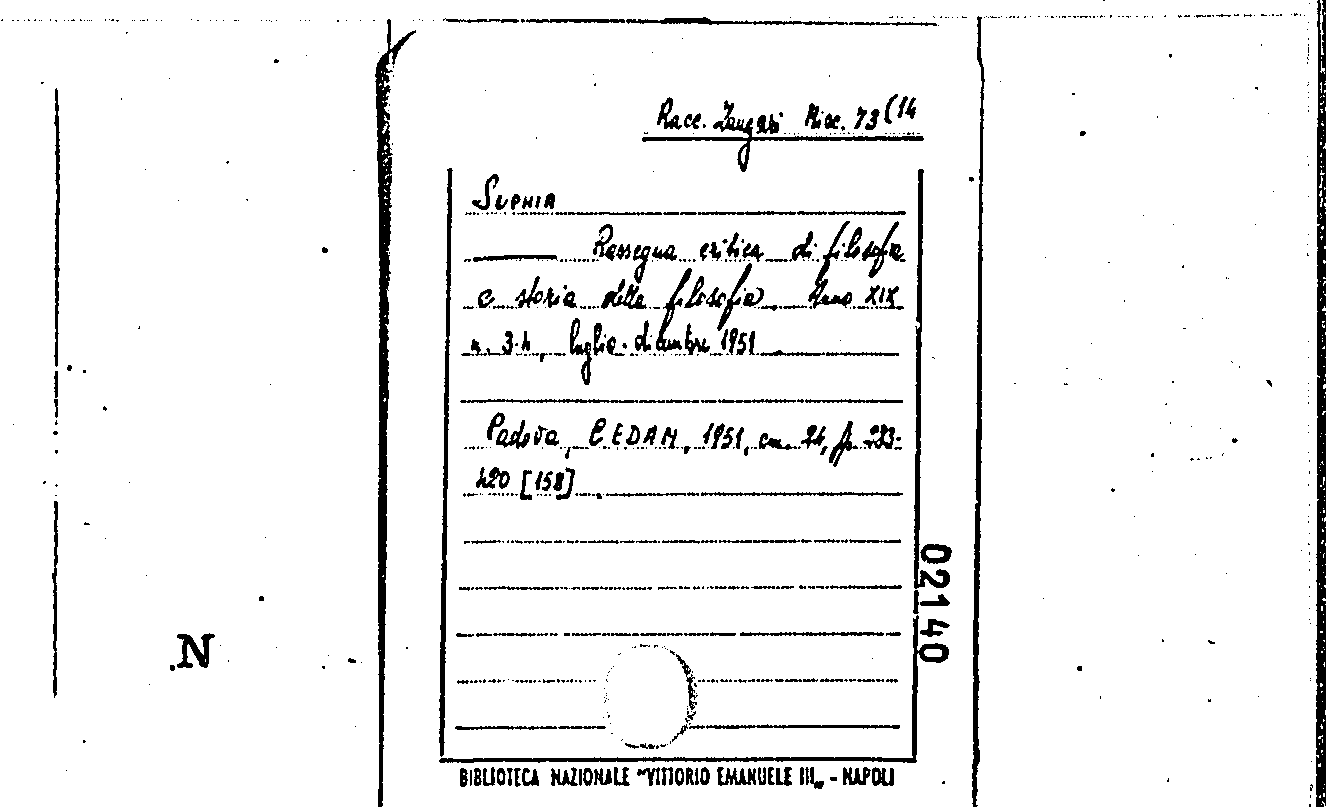 Racc. Zangari Misc. 73(14
SOPHIA
——— Rassegna critica di filosofia
e storia della filosofia. Anno XIX
n. 3-4, luglio-dicembre 1951
Padova, CEDAM, 1951, cm. 24, p. 233-
420 [158]
02140
N
BIBLIOTECA NAZIONALE "VITTORIO EMANUELE III„ - NAPOLI